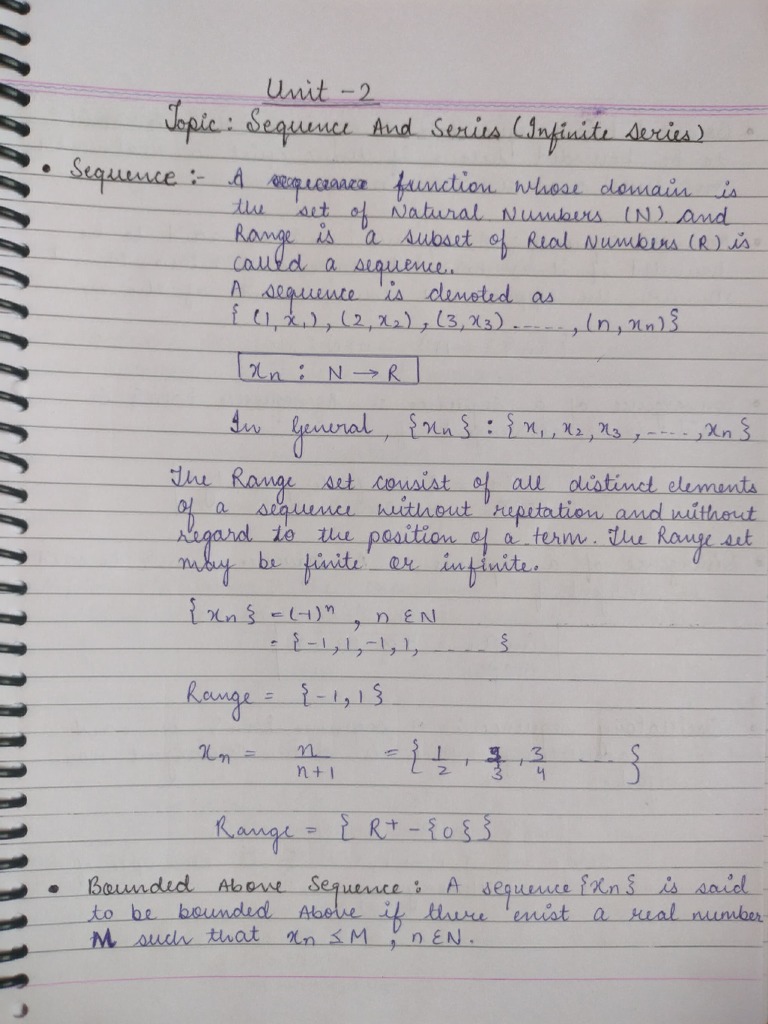 Unit - 2
Topic: Sequence And Series (Infinite series)
• Sequence :- A function whose domain is
the set of Natural Numbers (N) and
Range is a subset of Real Numbers (R) is
called a sequence.
A sequence is denoted as
{ (1, x₁), (2, x₂), (3, x₃) ......, (n, xₙ)}
xₙ : N → R
In General, {xₙ} : {x₁, x₂, x₃, ....., xₙ}
The Range set consist of all distinct elements
of a sequence without repetation and without
regard to the position of a term. The Range set
may be finite or infinite.
{xₙ} = (-1)ⁿ, n ∈ N
= {-1, 1, -1, 1, ...... }
Range = {-1, 1}
xₙ = n/(n+1) = { 1/2, 2/3, 3/4 ..... }
Range = { R⁺ - {0} }
• Bounded Above Sequence: A sequence {xₙ} is said
to be bounded Above if there enist a real number
M such that xₙ ≤ M, n ∈ N.